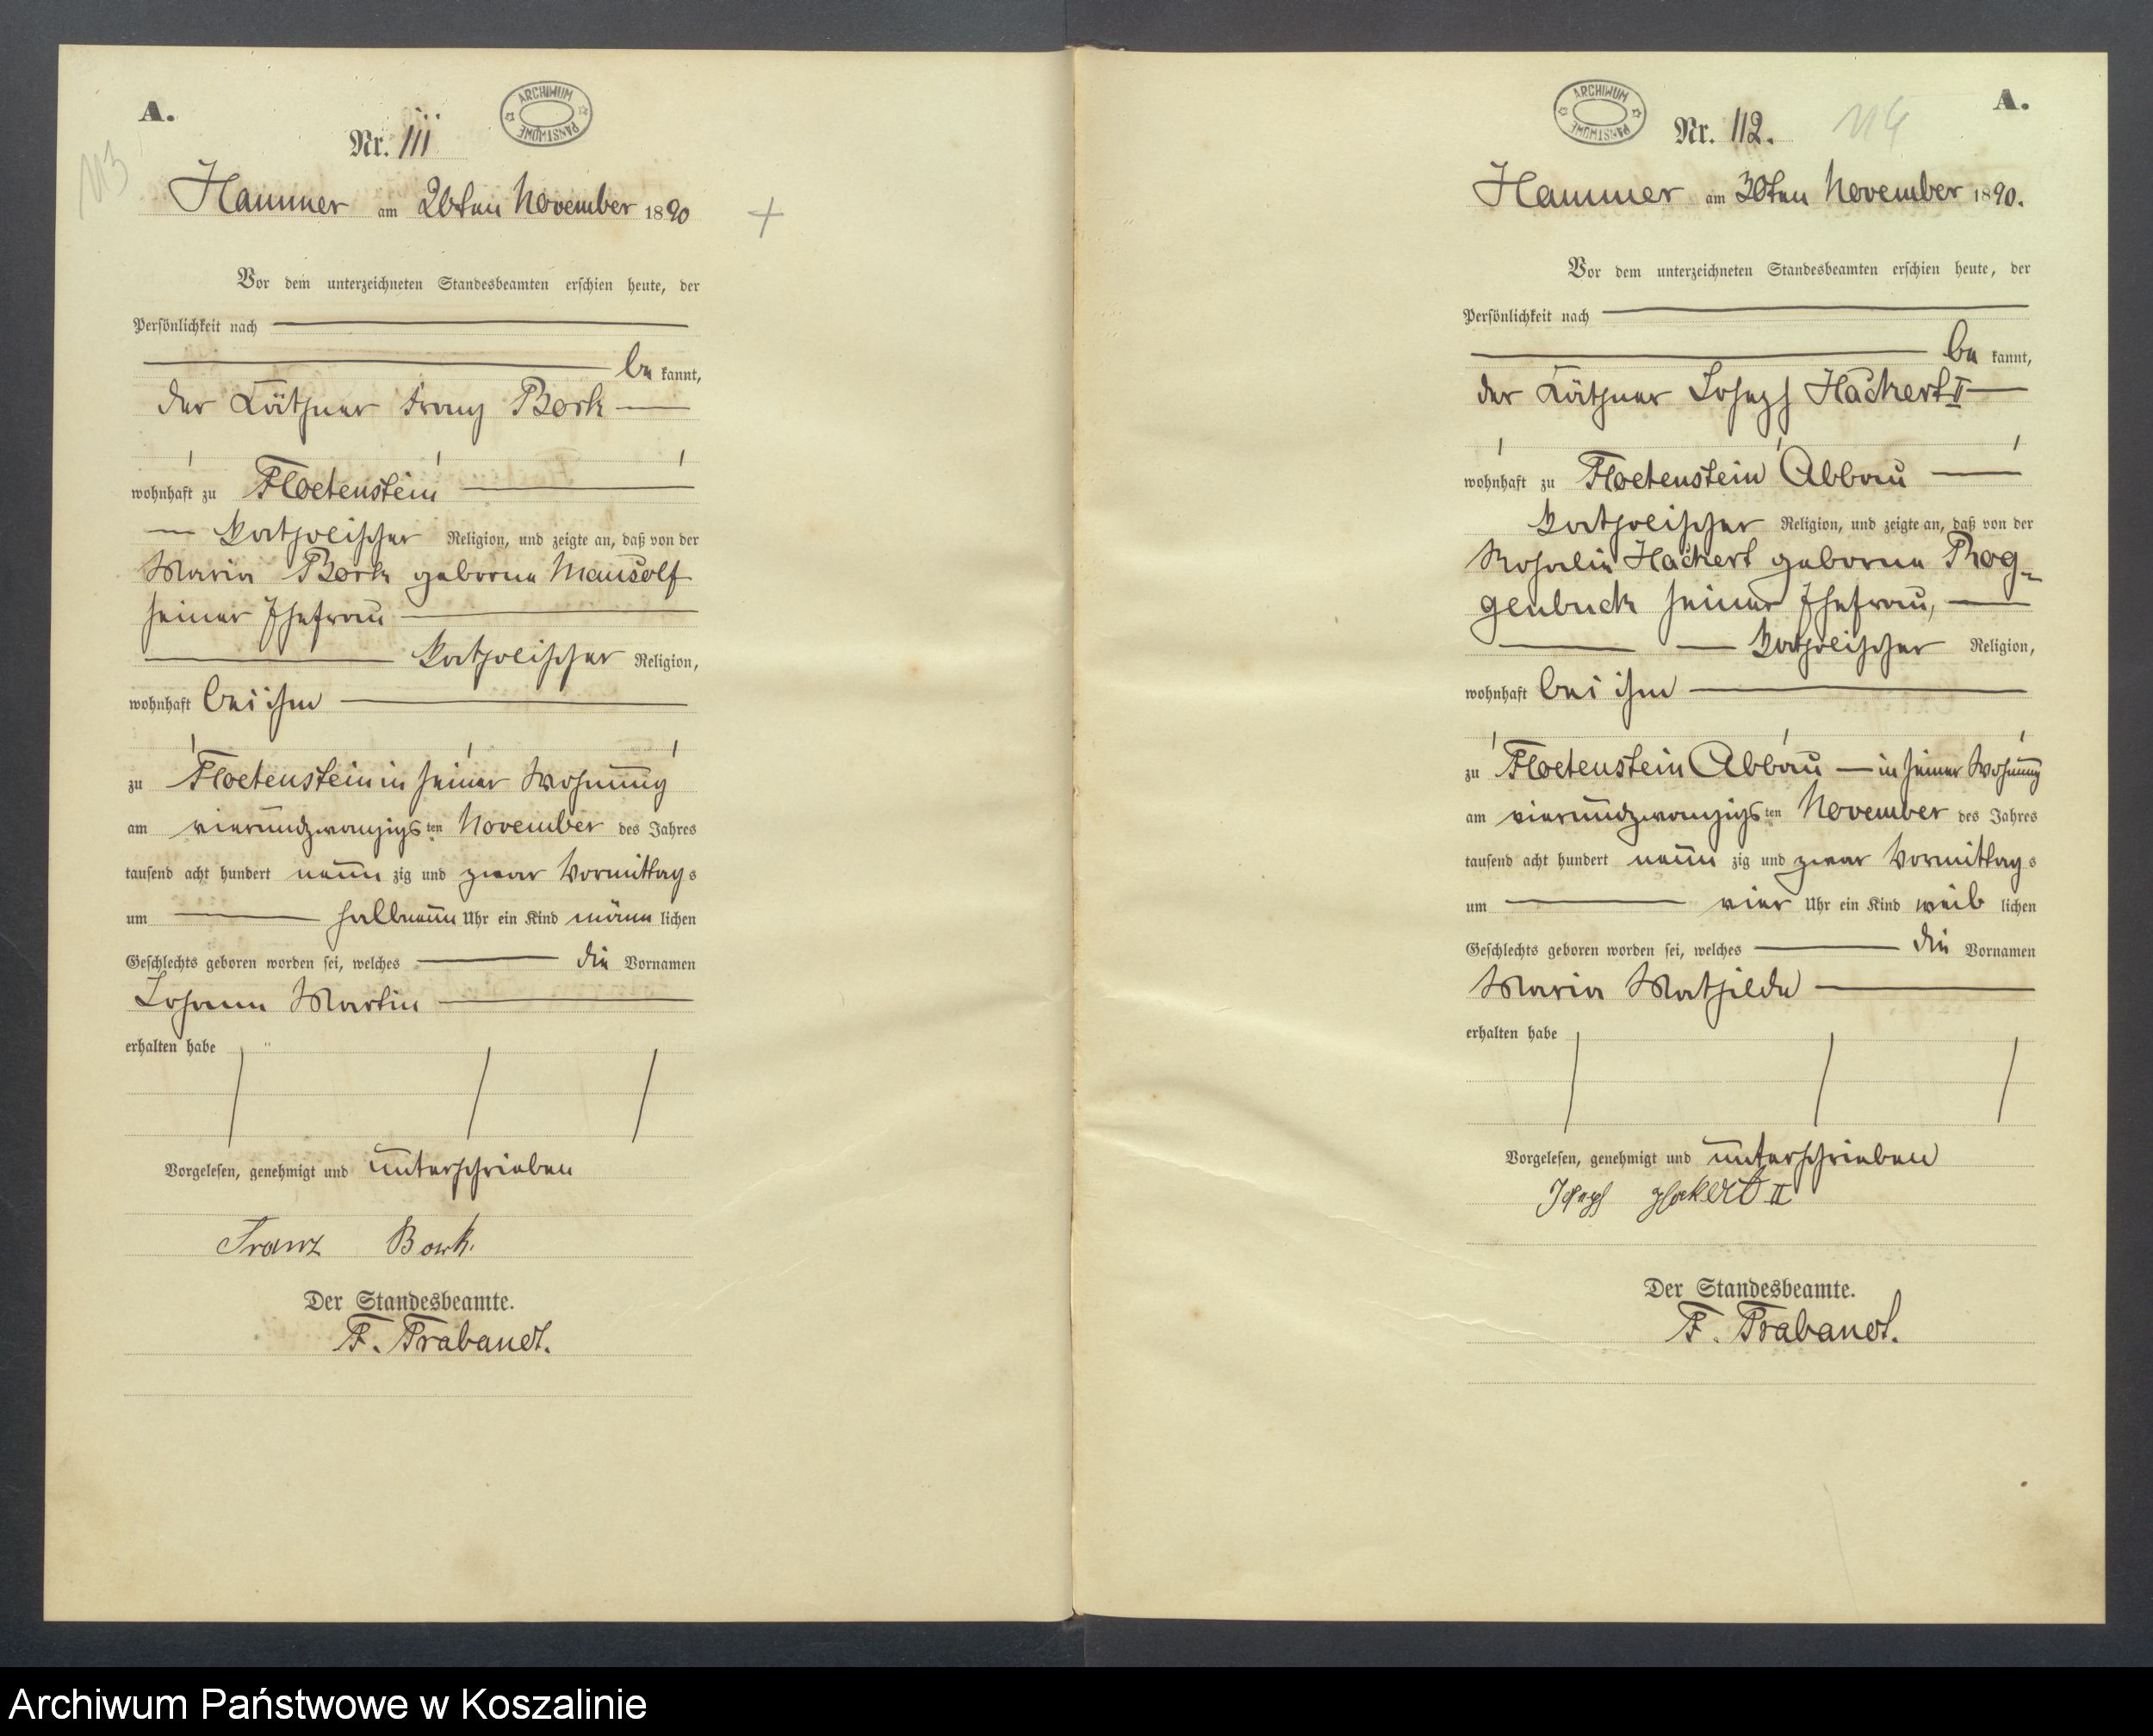 A.
113
Nr. 111
ARCHIWUM PAŃSTWOWE
Hammer am 26ten November 1890
+
Vor dem unterzeichneten Standesbeamten erschien heute, der
Persönlichkeit nach
be kannt,
der Käthner Franz Bork
wohnhaft zu Floetenstein
katholischer Religion, und zeigte an, daß von der
Maria Bork geborne Mausolf
seiner Ehefrau
katholischer Religion,
wohnhaft bei ihm
zu Floetenstein in seiner Wohnung
am vierundzwanzigs ten November des Jahres
tausend acht hundert neun zig und zwar Vormittag s
um halbneun Uhr ein Kind männ lichen
Geschlechts geboren worden sei, welches die Vornamen
Johann Martin
erhalten habe
Vorgelesen, genehmigt und unterschrieben
Franz Bork.
Der Standesbeamte.
F. Trabandt.
A.
114
Nr. 112.
ARCHIWUM PAŃSTWOWE
Hammer am 30ten November 1890.
Vor dem unterzeichneten Standesbeamten erschien heute, der
Persönlichkeit nach
be kannt,
der Käthner Joseph Hackert II
wohnhaft zu Floetenstein Abbau
katholischer Religion, und zeigte an, daß von der
Rosalie Hackert geborne Rog-
genbuck seiner Ehefrau,
katholischer Religion,
wohnhaft bei ihm
zu Floetenstein Abbau — in seiner Wohnung
am vierundzwanzigs ten November des Jahres
tausend acht hundert neun zig und zwar Vormittag s
um vier Uhr ein Kind weib lichen
Geschlechts geboren worden sei, welches die Vornamen
Maria Mathilde
erhalten habe
Vorgelesen, genehmigt und unterschrieben
Joseph Hackert II
Der Standesbeamte.
F. Trabandt.
Archiwum Państwowe w Koszalinie